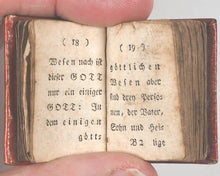 ( 18 )
Wesen nach ist
dieser GOTT
nur ein einiger
GOTT: In
dem einigen
gött-
( 19 )
göttlichen
Wesen aber
sind drey Perso-
nen, der Vater,
Sohn und Hei-
B 2 lige